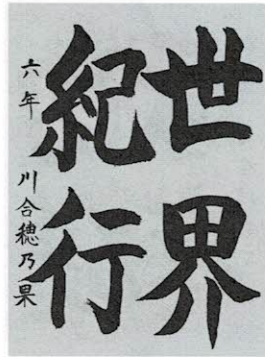 世界
紀行
六年 川合穂乃果